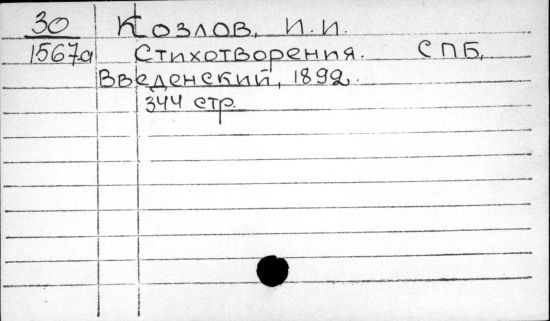 30 Козлов, И.И.
1567а Стихотворения. СПБ,
Введенский, 1892.
344 стр.